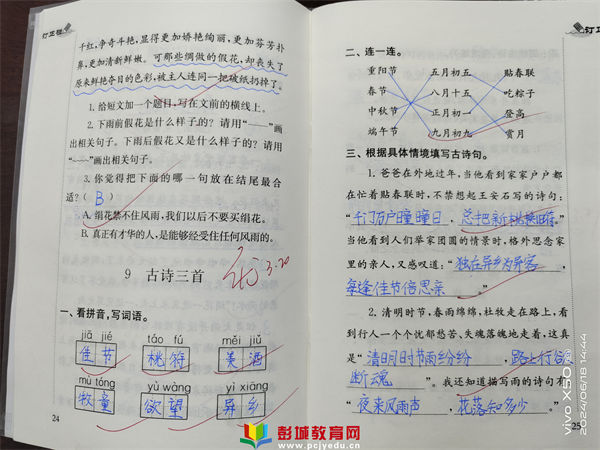 订正栏
千红,争奇斗艳,显得更加娇艳绚丽,更加芬芳扑
鼻,更加清新鲜嫩。可那些绸做的假花,却丧失了
原来鲜艳夺目的色彩,被主人连同一把破纸扔掉了。
1. 给短文加一个题目,写在文前的横线上。
2. 下雨前假花是什么样子的?请用“——”画
出相关句子。下雨后假花又是什么样子的?请用
“~~~”画出相关句子。
3. 你觉得把下面的哪一句放在结尾最合
适?( B )
A. 绢花禁不住风雨,我们以后不要买绢花。
B. 真正有才华的人,是能够经受住任何风雨的。
9 古诗三首
3.20
一、看拼音,写词语。
jiā jié táo fú měi jiǔ
佳节 桃符 美酒
mù tóng yù wàng yì xiāng
牧童 欲望 异乡
24
订正
二、连一连。
重阳节 五月初五 贴春联
春节 八月十五 吃粽子
中秋节 正月初一 登高
端午节 九月初九 赏月
三、根据具体情境填写古诗句。
1. 爸爸在外地过年,当他看到家家户户都
在忙着贴春联时,不禁想起王安石写的诗句:
“千门万户曈曈日,总把新桃换旧符。”
当他看到人们举家团圆的情景时,格外思念家
里的亲人,又感叹道:“独在异乡为异客,
每逢佳节倍思亲。”
2. 清明时节,春雨绵绵,杜牧走在路上,看
到行人一个个忧郁愁苦、失魂落魄地走着,这真
是“清明时节雨纷纷,路上行人欲
断魂”。我还知道描写雨的诗句有
“夜来风雨声,花落知多少。”
25
vivo X50
2024/06/18 14:44
彭城教育网
www.pcjyedu.cn